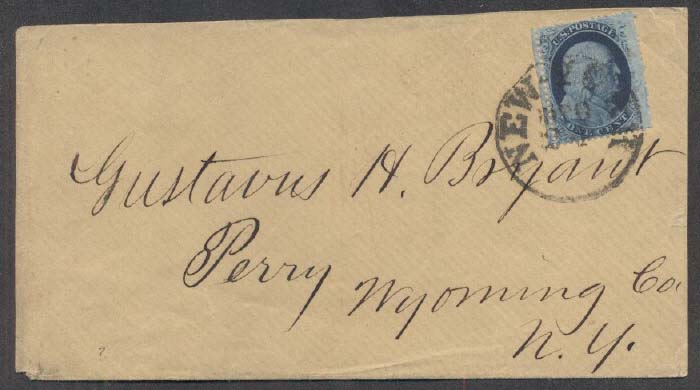 U.S. POSTAGE
ONE CENT
NEW
Gustavus H. Bryant
Perry
Wyoming Co
N. Y.